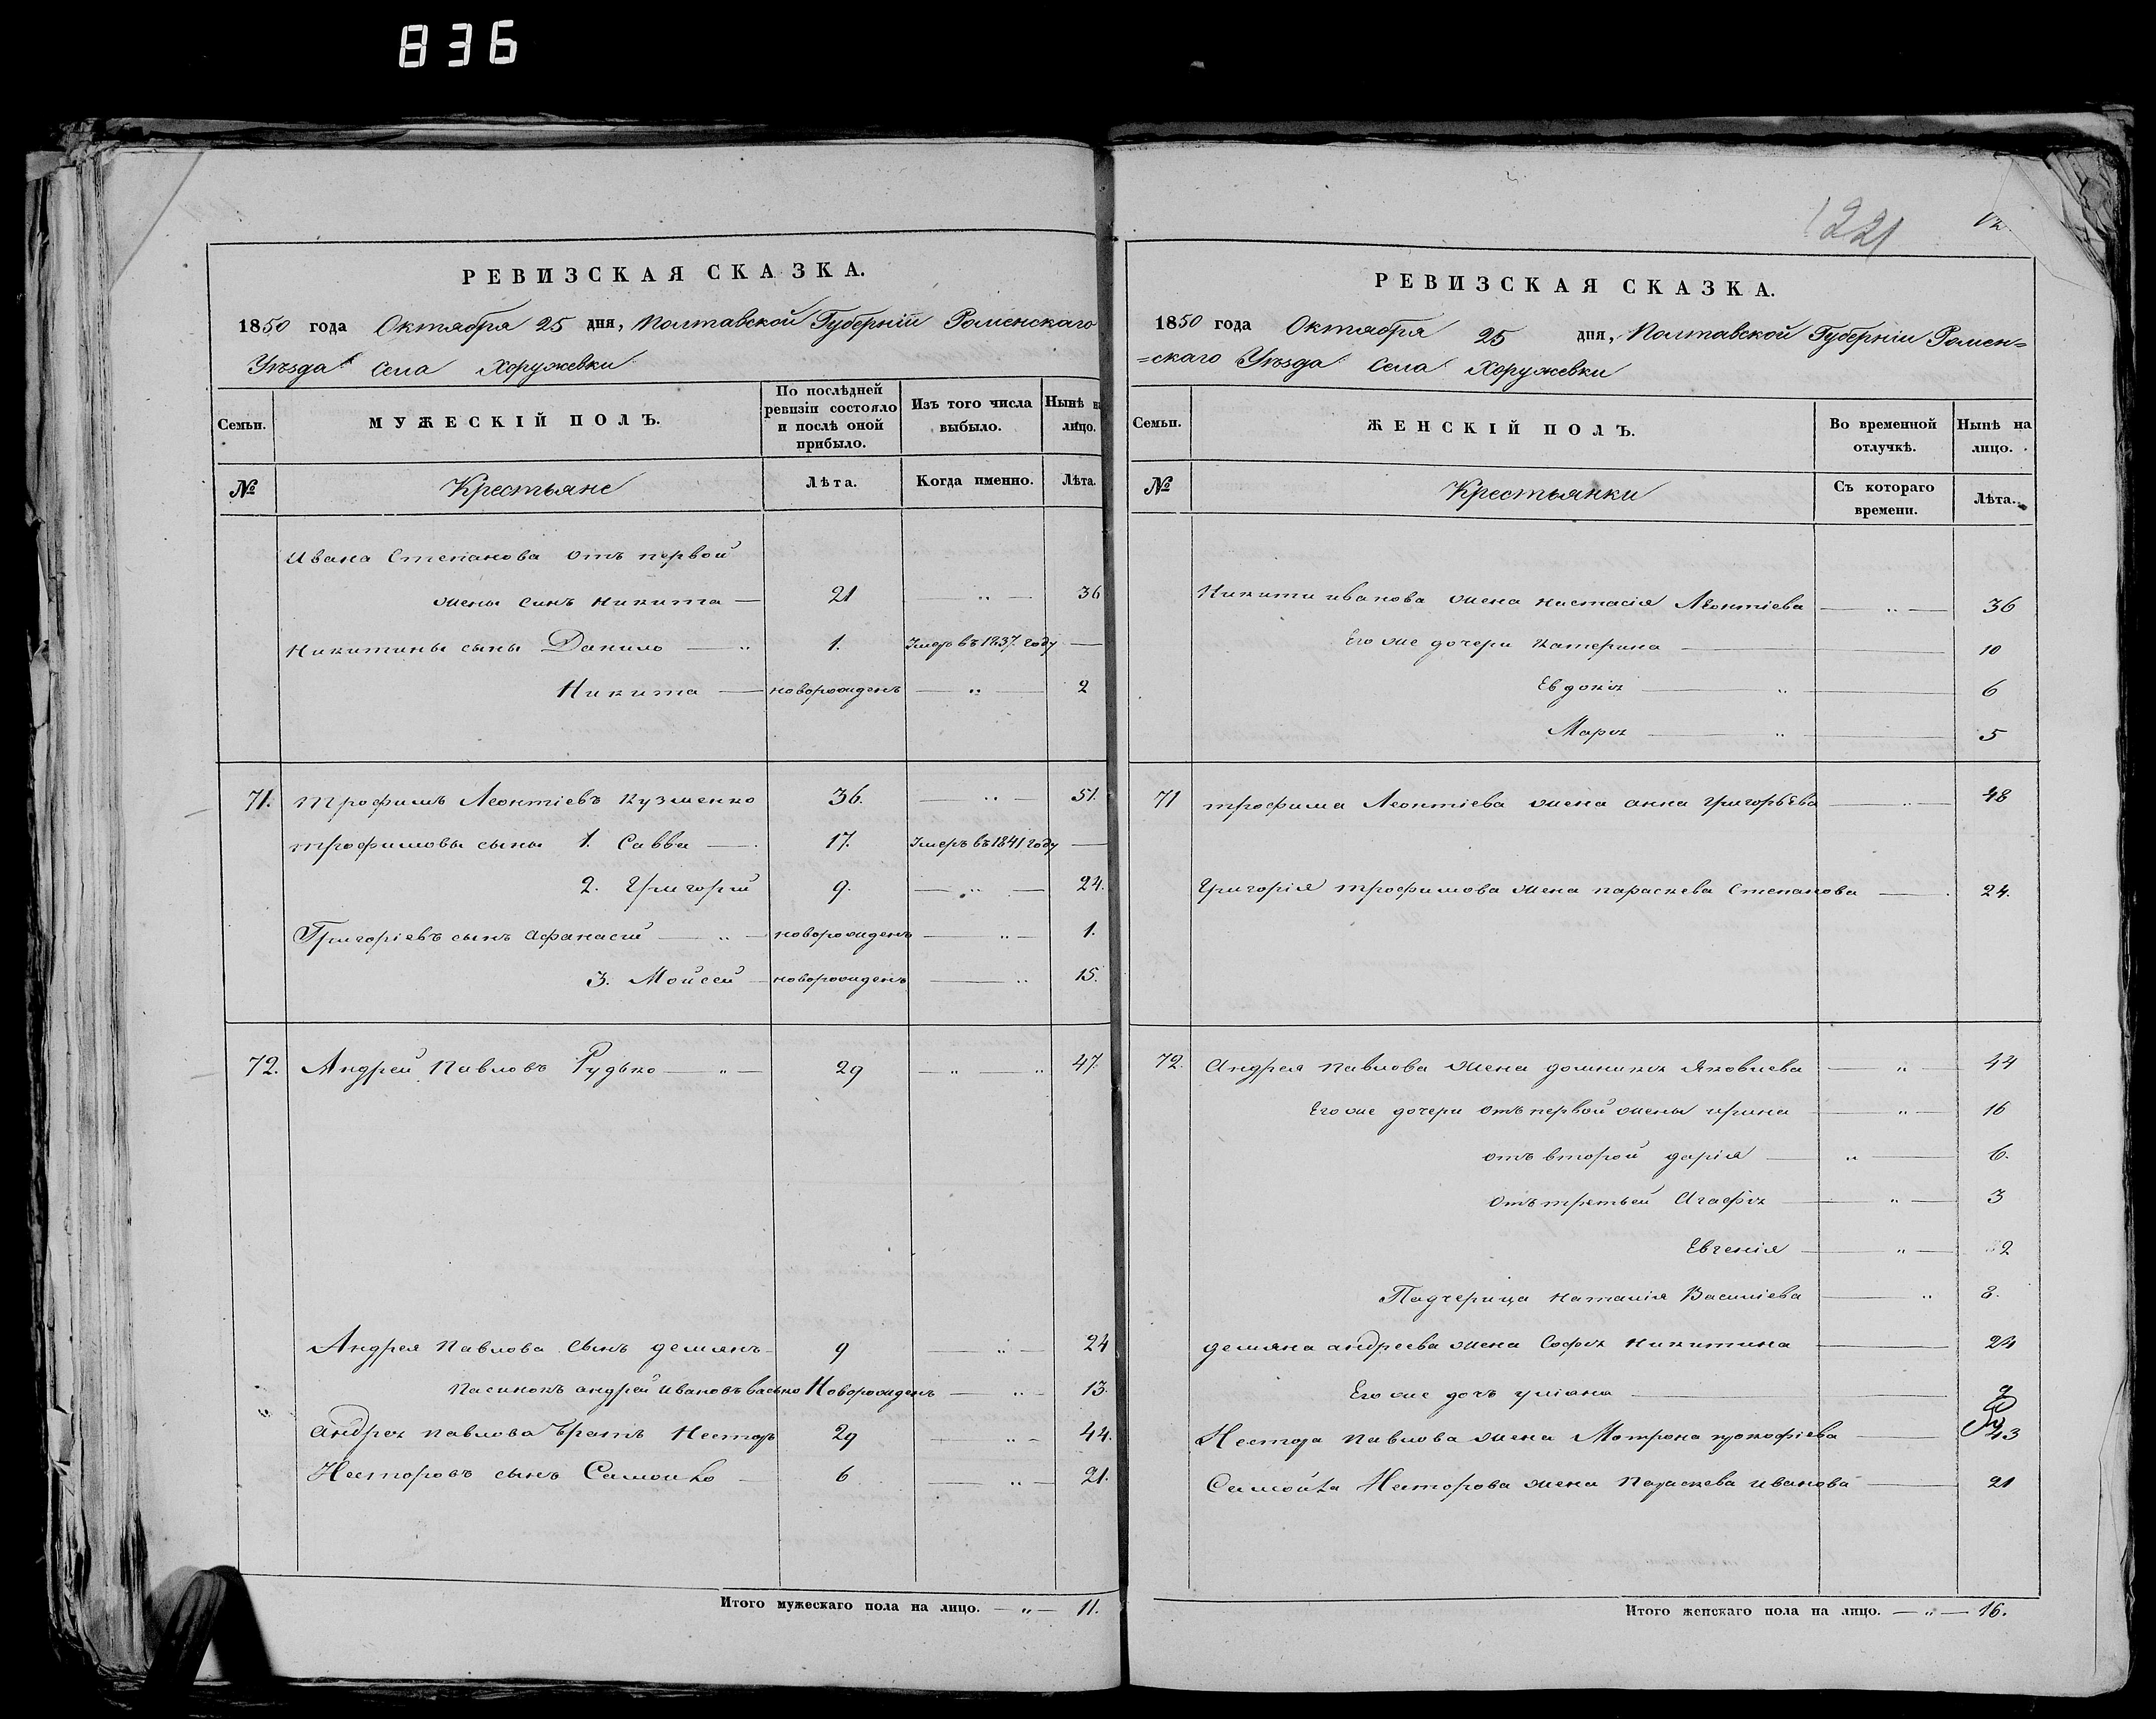 836
РЕВИЗСКАЯ СКАЗКА.
1850 года Октября 25 дня, Полтавской Губерніи Роменскаго
Уѣзда Села Хоружевки
Семьи.
МУЖЕСКІЙ ПОЛЪ.
По послѣдней ревизіи состояло и послѣ оной прибыло.
Изъ того числа выбыло.
Нынѣ на лицо.
№
Крестьяне
Лѣта.
Когда именно.
Лѣта.
Ивана Степанова отъ первой
жены синъ Никита — 21 — „ — 36
Никитины сыны Данило — „ 1. Умеръ въ 1837 году —
Никита — новорожденъ — „ — 2
71. Трофимъ Леонтіевъ Кузменко 36. — „ — 51.
трофимовы сыны 1. Савва — 17. Умеръ въ 1841 году —
2. Григорій 9. — „ — 24.
Григоріевъ сынъ Афанасій — „ — новорожденъ — „ — 1.
3. Мойсей — новорожденъ — „ 15.
72. Андрей Павловъ Рудько — „ — 29 — „ — „ 47.
Андрея Павлова сынъ демянъ — 9 — „ — 24
Пасинокъ андрей Ивановъ васько Новорожденъ — „ — 13.
андрея павлова братъ Несторъ 29 — „ — 44.
Несторовъ сынъ Самойло — 6 — „ — 21.
Итого мужескаго пола на лицо. — „ — 11.
1221
РЕВИЗСКАЯ СКАЗКА.
1850 года Октября 25 дня, Полтавской Губерніи Ромен=
=скаго Уѣзда Села Хоружевки
Семьи.
ЖЕНСКІЙ ПОЛЪ.
Во временной отлучкѣ.
Нынѣ на лицо.
№
Крестьянки
Съ котораго времени.
Лѣта.
Никити иванова жена настасія Леонтіева — „ — 36
Его же дочери Катерина — 10
Евдокія — „ — 6
Марія — „ — 5
71 трофима Леонтіева жена анна григорьева — „ — 48
Григорія трофимова жена параскева Степанова — 24.
72. Андрея Павлова жена домникія Яковлева — „ — 44
Его же дочери отъ первой жены ирина — „ — 16
отъ второй дарія — „ — 6.
отъ третьей Агафія — „ — 3
Евгенія — „ — 2
Падчерица Наталія Василіева — „ 8.
демяна андреева жена Софія никитина — 24
Его же дочъ уліяна —
Нестора Павлова жена Мотрона прокофіева — 43
Самойла Несторова жена Параскева иванова — 21
Итого женскаго пола на лицо. — „ — 16.